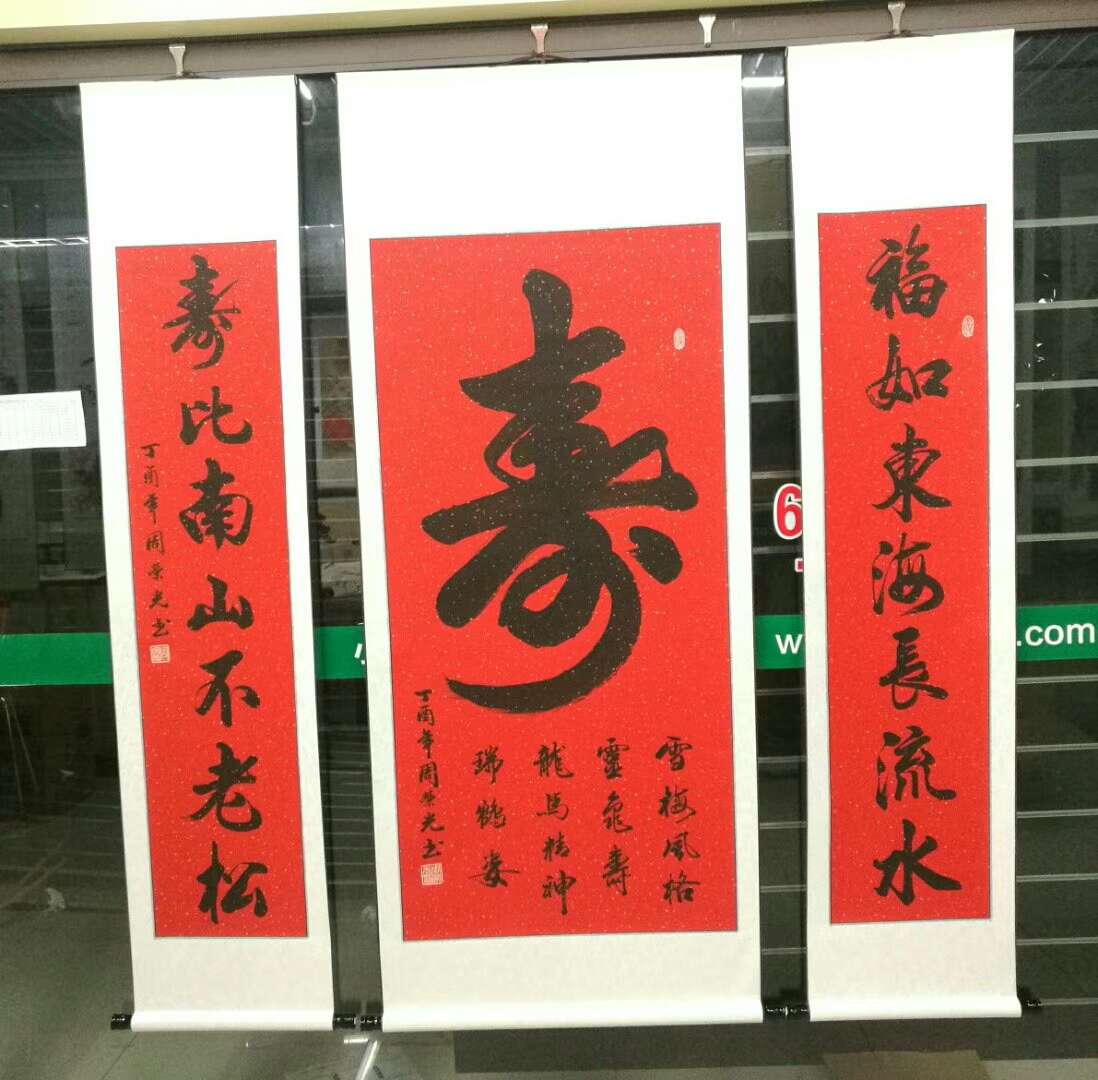 福如東海長流水
壽
雪梅風格
靈龜壽
龍馬精神
瑞鶴姿
丁酉年周榮光书
壽比南山不老松
丁酉年周榮光书
6
w
.com